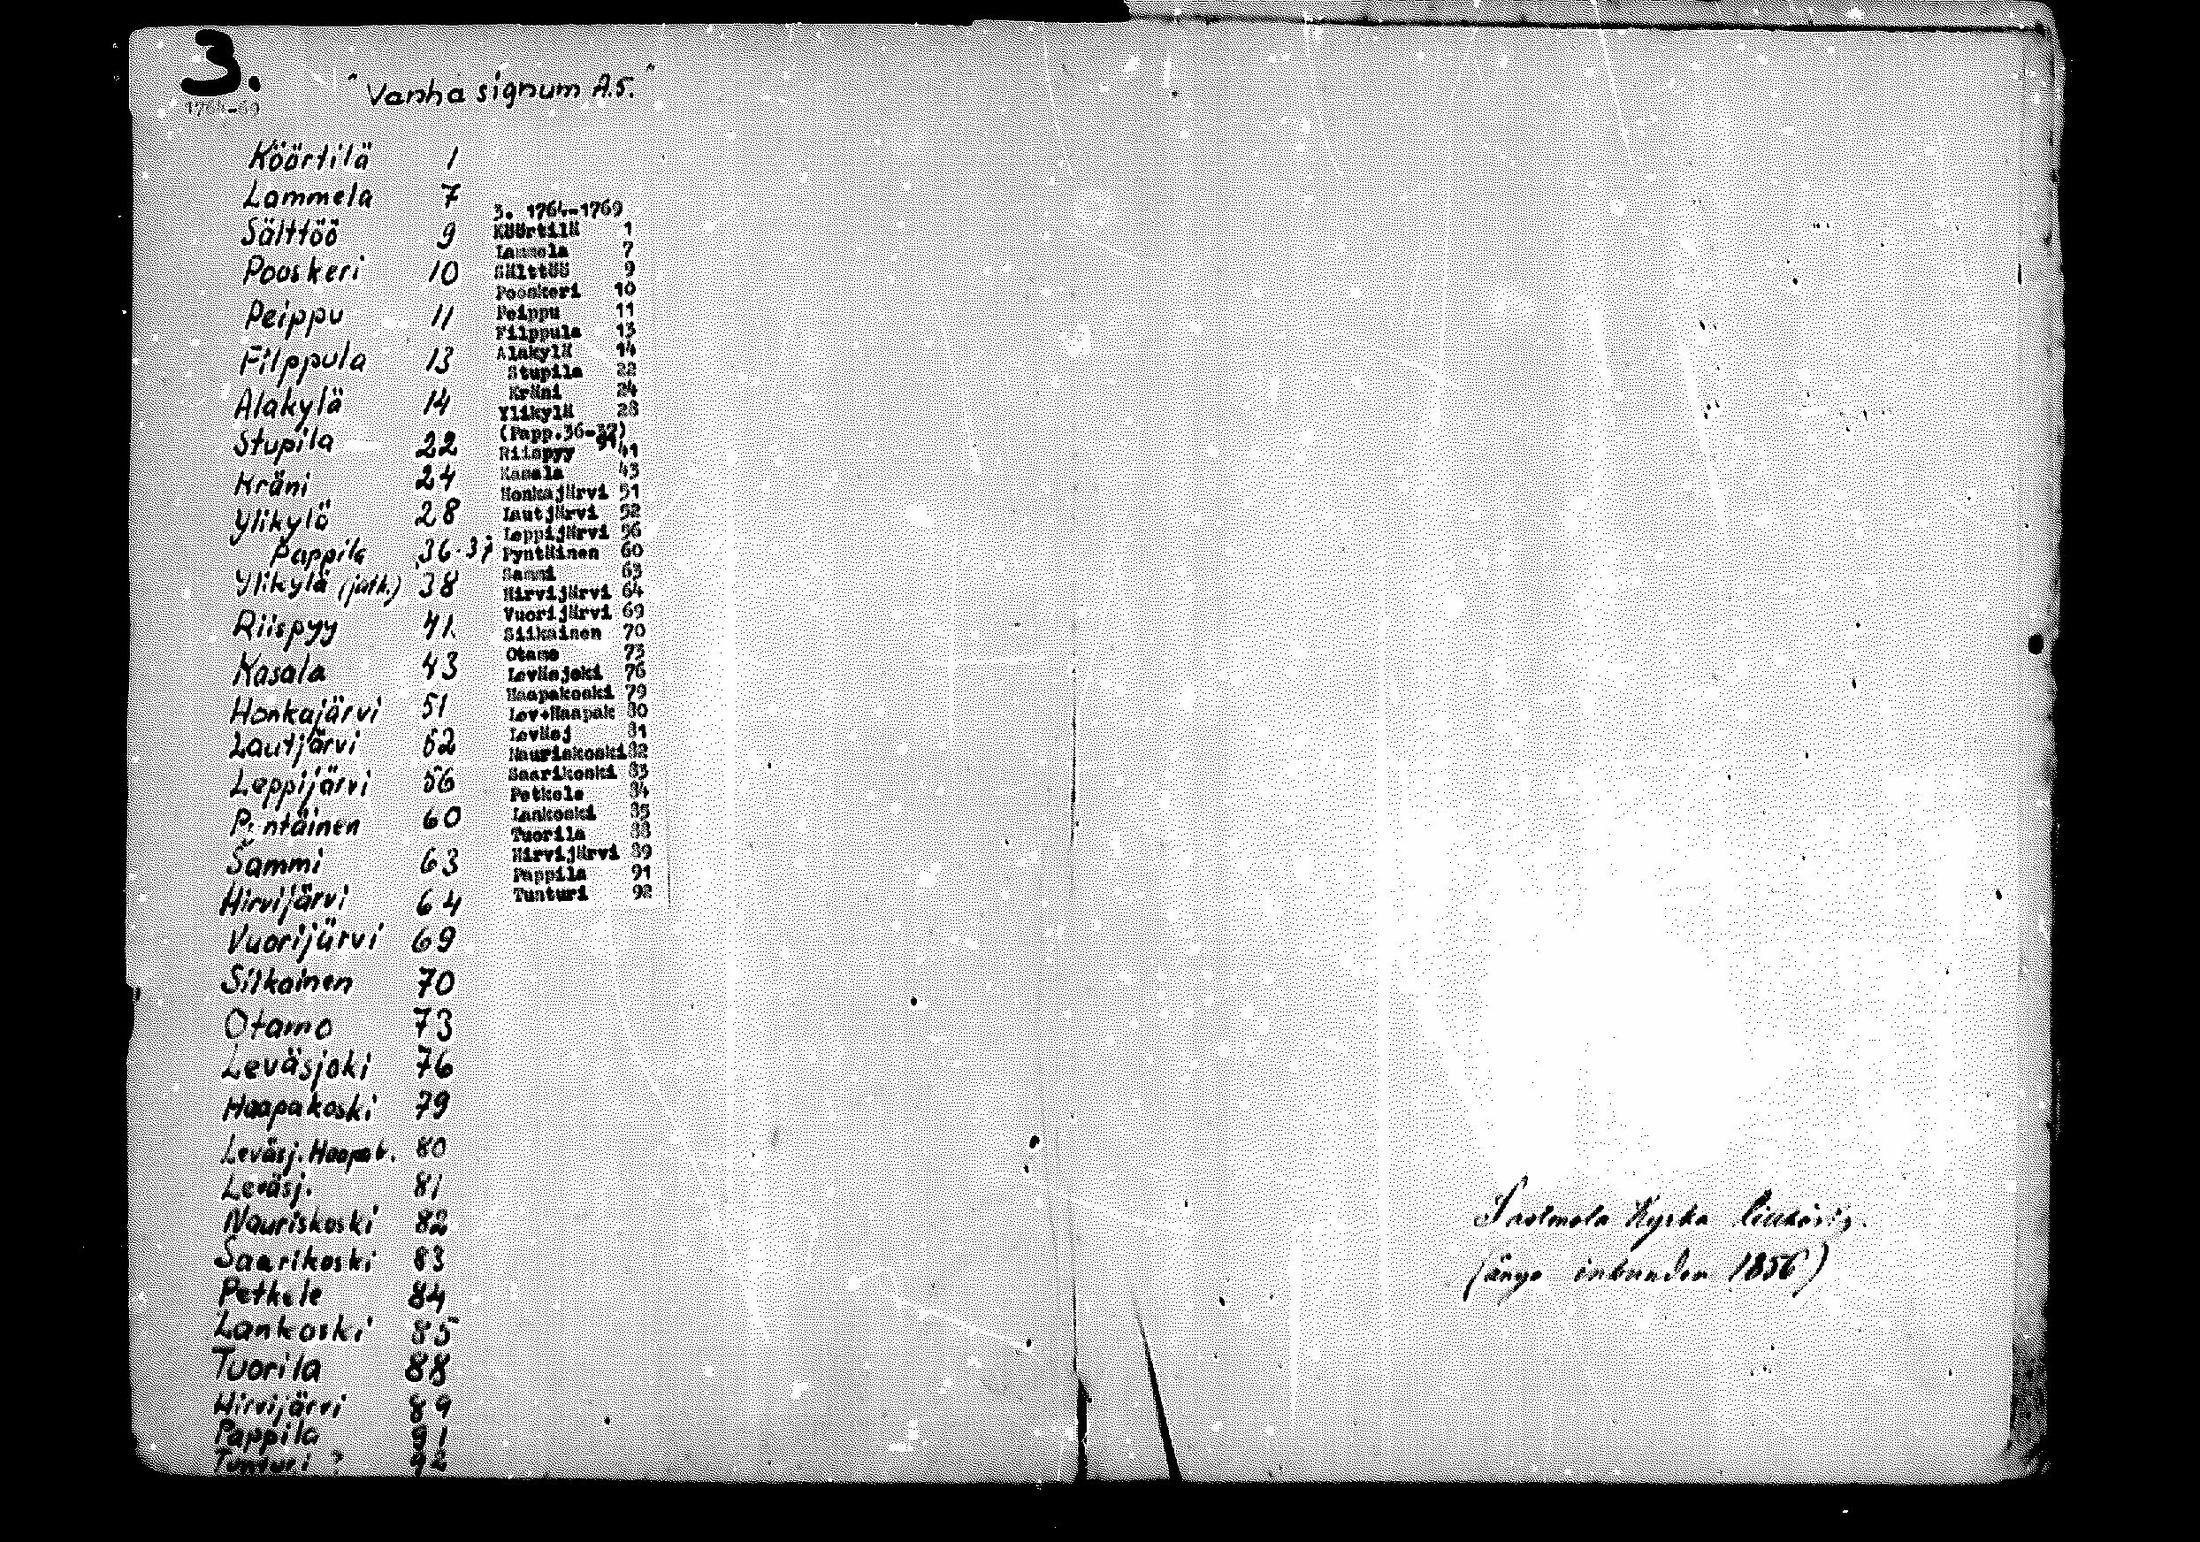 3.
1764-69
"Vanha signum A.5."
Köörtilä 1
Lammela 7
Sälttöö 9
Pooskeri 10
Peippu 11
Filppula 13
Alakylä 14
Stupila 22
Kräni 24
Ylikylä 28
Pappila 36-37
Ylikylä (jatk.) 38
Riispyy 41
Kasala 43
Honkajärvi 51
Lautjärvi 52
Leppijärvi 56
Pyntäinen 60
Sammi 63
Hirvijärvi 64
Vuorijärvi 69
Siikainen 70
Otamo 73
Leväsjoki 76
Haapakoski 79
Leväsj. Haapak. 80
Leväsj. 81
Nauriskoski 82
Saarikoski 83
Petkele 84
Lankoski 85
Tuorila 88
Hirvijärvi 89
Pappila 91
Tunturi ? 92
3. 1764-1769
Köörtilä 1
Lammela 7
Sälttöö 9
Pooskeri 10
Peippu 11
Filppula 13
Alakylä 14
Stupila 22
Kräni 24
Ylikylä 28
(Papp.36-37)
91
Riispyy 41
Kasala 43
Honkajärvi 51
Lautjärvi 52
Leppijärvi 56
Pyntäinen 60
Sammi 63
Hirvijärvi 64
Vuorijärvi 69
Siikainen 70
Otamo 73
Leväsjoki 76
Haapakoski 79
Lev+Haapak 80
Leväsj 81
Nauriskoski 82
Saarikoski 83
Petkele 84
Lankoski 85
Tuorila 88
Hirvijärvi 89
Pappila 91
Tunturi 92
Sastmola Kyrka
(ånyo inbunden 1856)